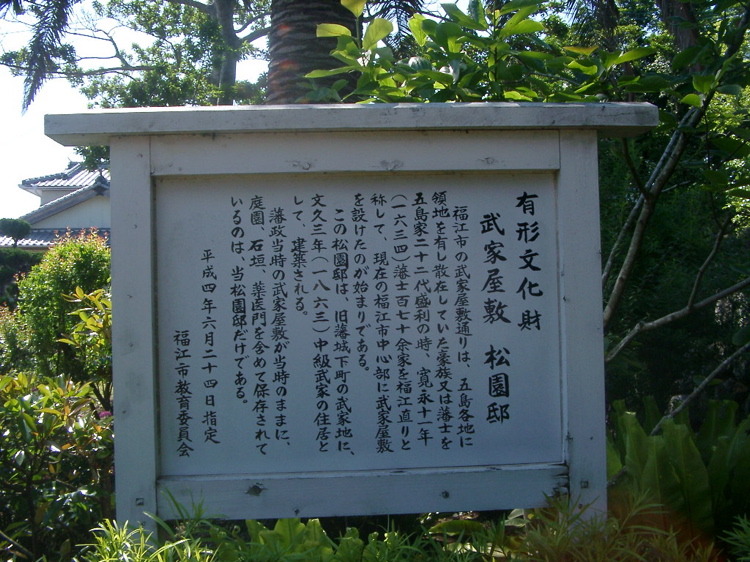 有形文化財
武家屋敷 松園邸
福江市の武家屋敷通りは、五島各地に
領地を有し散在していた豪族又は藩士を
五島家二十二代盛利の時、寛永十一年
(一六三四)藩士百七十余家を福江直りと
称して、現在の福江市中心部に武家屋敷
を設けたのが始まりである。
この松園邸は、旧藩城下町の武家地に、
文久三年(一八六三)中級武家の住居と
して、建築される。
藩政当時の武家屋敷が当時のままに、
庭園、石垣、薬医門を含めて保存されて
いるのは、当松園邸だけである。
平成四年六月二十四日指定
福江市教育委員会